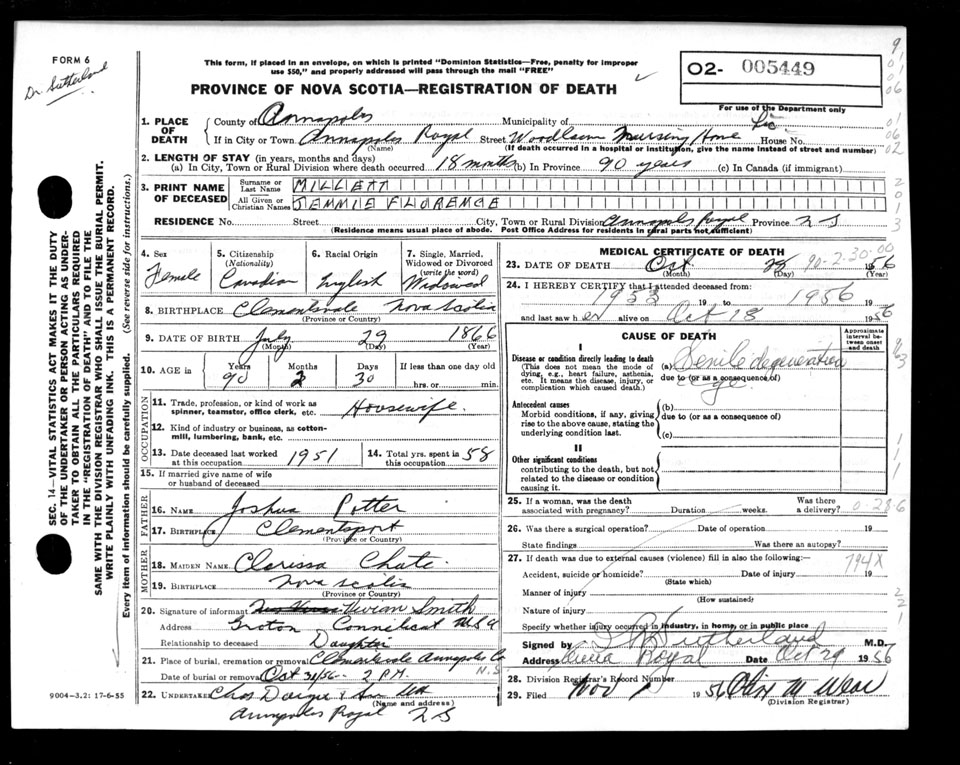 FORM 6
Dr Sutherland
This form, if placed in an envelope, on which is printed "Dominion Statistics—Free, penalty for improper
use $50," and properly addressed will pass through the mail "FREE"
PROVINCE OF NOVA SCOTIA—REGISTRATION OF DEATH
02- 005449
For use of the Department only
1. PLACE OF DEATH
County of Annapolis Municipality of
If in City or Town Annapolis Royal Street Woodlawn Nursing Home House No.
(Name) (If death occurred in a hospital or institution, give the name instead of street and number)
2. LENGTH OF STAY (in years, months and days)
(a) In City, Town or Rural Division where death occurred 18 months (b) In Province 90 years (c) In Canada (if immigrant)
3. PRINT NAME OF DECEASED
Surname or Last Name MILLETT
All Given or Christian Names JENNIE FLORENCE
RESIDENCE No. Street City, Town or Rural Division Annapolis Royal Province N S
(Residence means usual place of abode. Post Office Address for residents in rural parts not sufficient)
4. Sex Female
5. Citizenship (Nationality) Canadian
6. Racial Origin English
7. Single, Married, Widowed or Divorced (write the word) Widowed
8. BIRTHPLACE Clementsvale Nova Scotia
(Province or Country)
9. DATE OF BIRTH July 29 1866
(Month) (Day) (Year)
10. AGE in Years 90 Months 2 Days 30 If less than one day old hrs. or min.
OCCUPATION
11. Trade, profession, or kind of work as spinner, teamster, office clerk, etc. Housewife.
12. Kind of industry or business, as cotton-mill, lumbering, bank, etc.
13. Date deceased last worked at this occupation 1951
14. Total yrs. spent in this occupation 58
15. If married give name of wife or husband of deceased
FATHER
16. NAME Joshua Potter
17. BIRTHPLACE Clementsport
(Province or Country)
MOTHER
18. MAIDEN NAME Clarissa Chute
19. BIRTHPLACE Nova Scotia
(Province or Country)
20. Signature of informant Vivian Smith
Address Groton U S A
Relationship to deceased Daughter
21. Place of burial, cremation or removal Clementsvale Annapolis Co
N.S
Date of burial or removal Oct 31/56 - 2 P.M.
22. UNDERTAKER
(Name and address)
Annapolis Royal N S
MEDICAL CERTIFICATE OF DEATH
23. DATE OF DEATH Oct 90-2-30-00 1956
(Month) (Day) (Year)
24. I HEREBY CERTIFY that I attended deceased from:
1953 19 to 1956 19
and last saw her alive on Oct 18 1956
CAUSE OF DEATH
Approximate interval between onset and death
I
Disease or condition directly leading to death
(This does not mean the mode of dying, e.g., heart failure, asthenia, etc. It means the disease, injury, or complication which caused death.)
(a) Senile degeneration
due to (or as a consequence of) age
Antecedent causes
Morbid conditions, if any, giving rise to the above cause, stating the underlying condition last.
(b)
due to (or as a consequence of)
(c)
II
Other significant conditions
contributing to the death, but not related to the disease or condition causing it.
25. If a woman, was the death associated with pregnancy? Duration weeks. Was there a delivery?
26. Was there a surgical operation? Date of operation 19
State findings Was there an autopsy?
27. If death was due to external causes (violence) fill in also the following:—
794X
Accident, suicide or homicide? Date of injury 19
(State which)
Manner of injury
(How sustained)
Nature of injury
Specify whether injury occurred in industry, in home, or in public place
Signed by Sutherland M.D.
Address Anna Royal Date Oct 29 1956
28. Division Registrar's Record Number
29. Filed Nov 1 1956
(Division Registrar)
9004—3.2: 17-6-55
SEC. 14—VITAL STATISTICS ACT MAKES IT THE DUTY
OF THE UNDERTAKER OR PERSON ACTING AS UNDER-
TAKER TO OBTAIN ALL THE PARTICULARS REQUIRED
IN THE "REGISTRATION OF DEATH" AND TO FILE THE
SAME WITH THE DIVISION REGISTRAR WHO SHALL ISSUE THE BURIAL PERMIT.
WRITE PLAINLY WITH UNFADING INK. THIS IS A PERMANENT RECORD.
Every item of information should be carefully supplied. (See reverse side for instructions.)